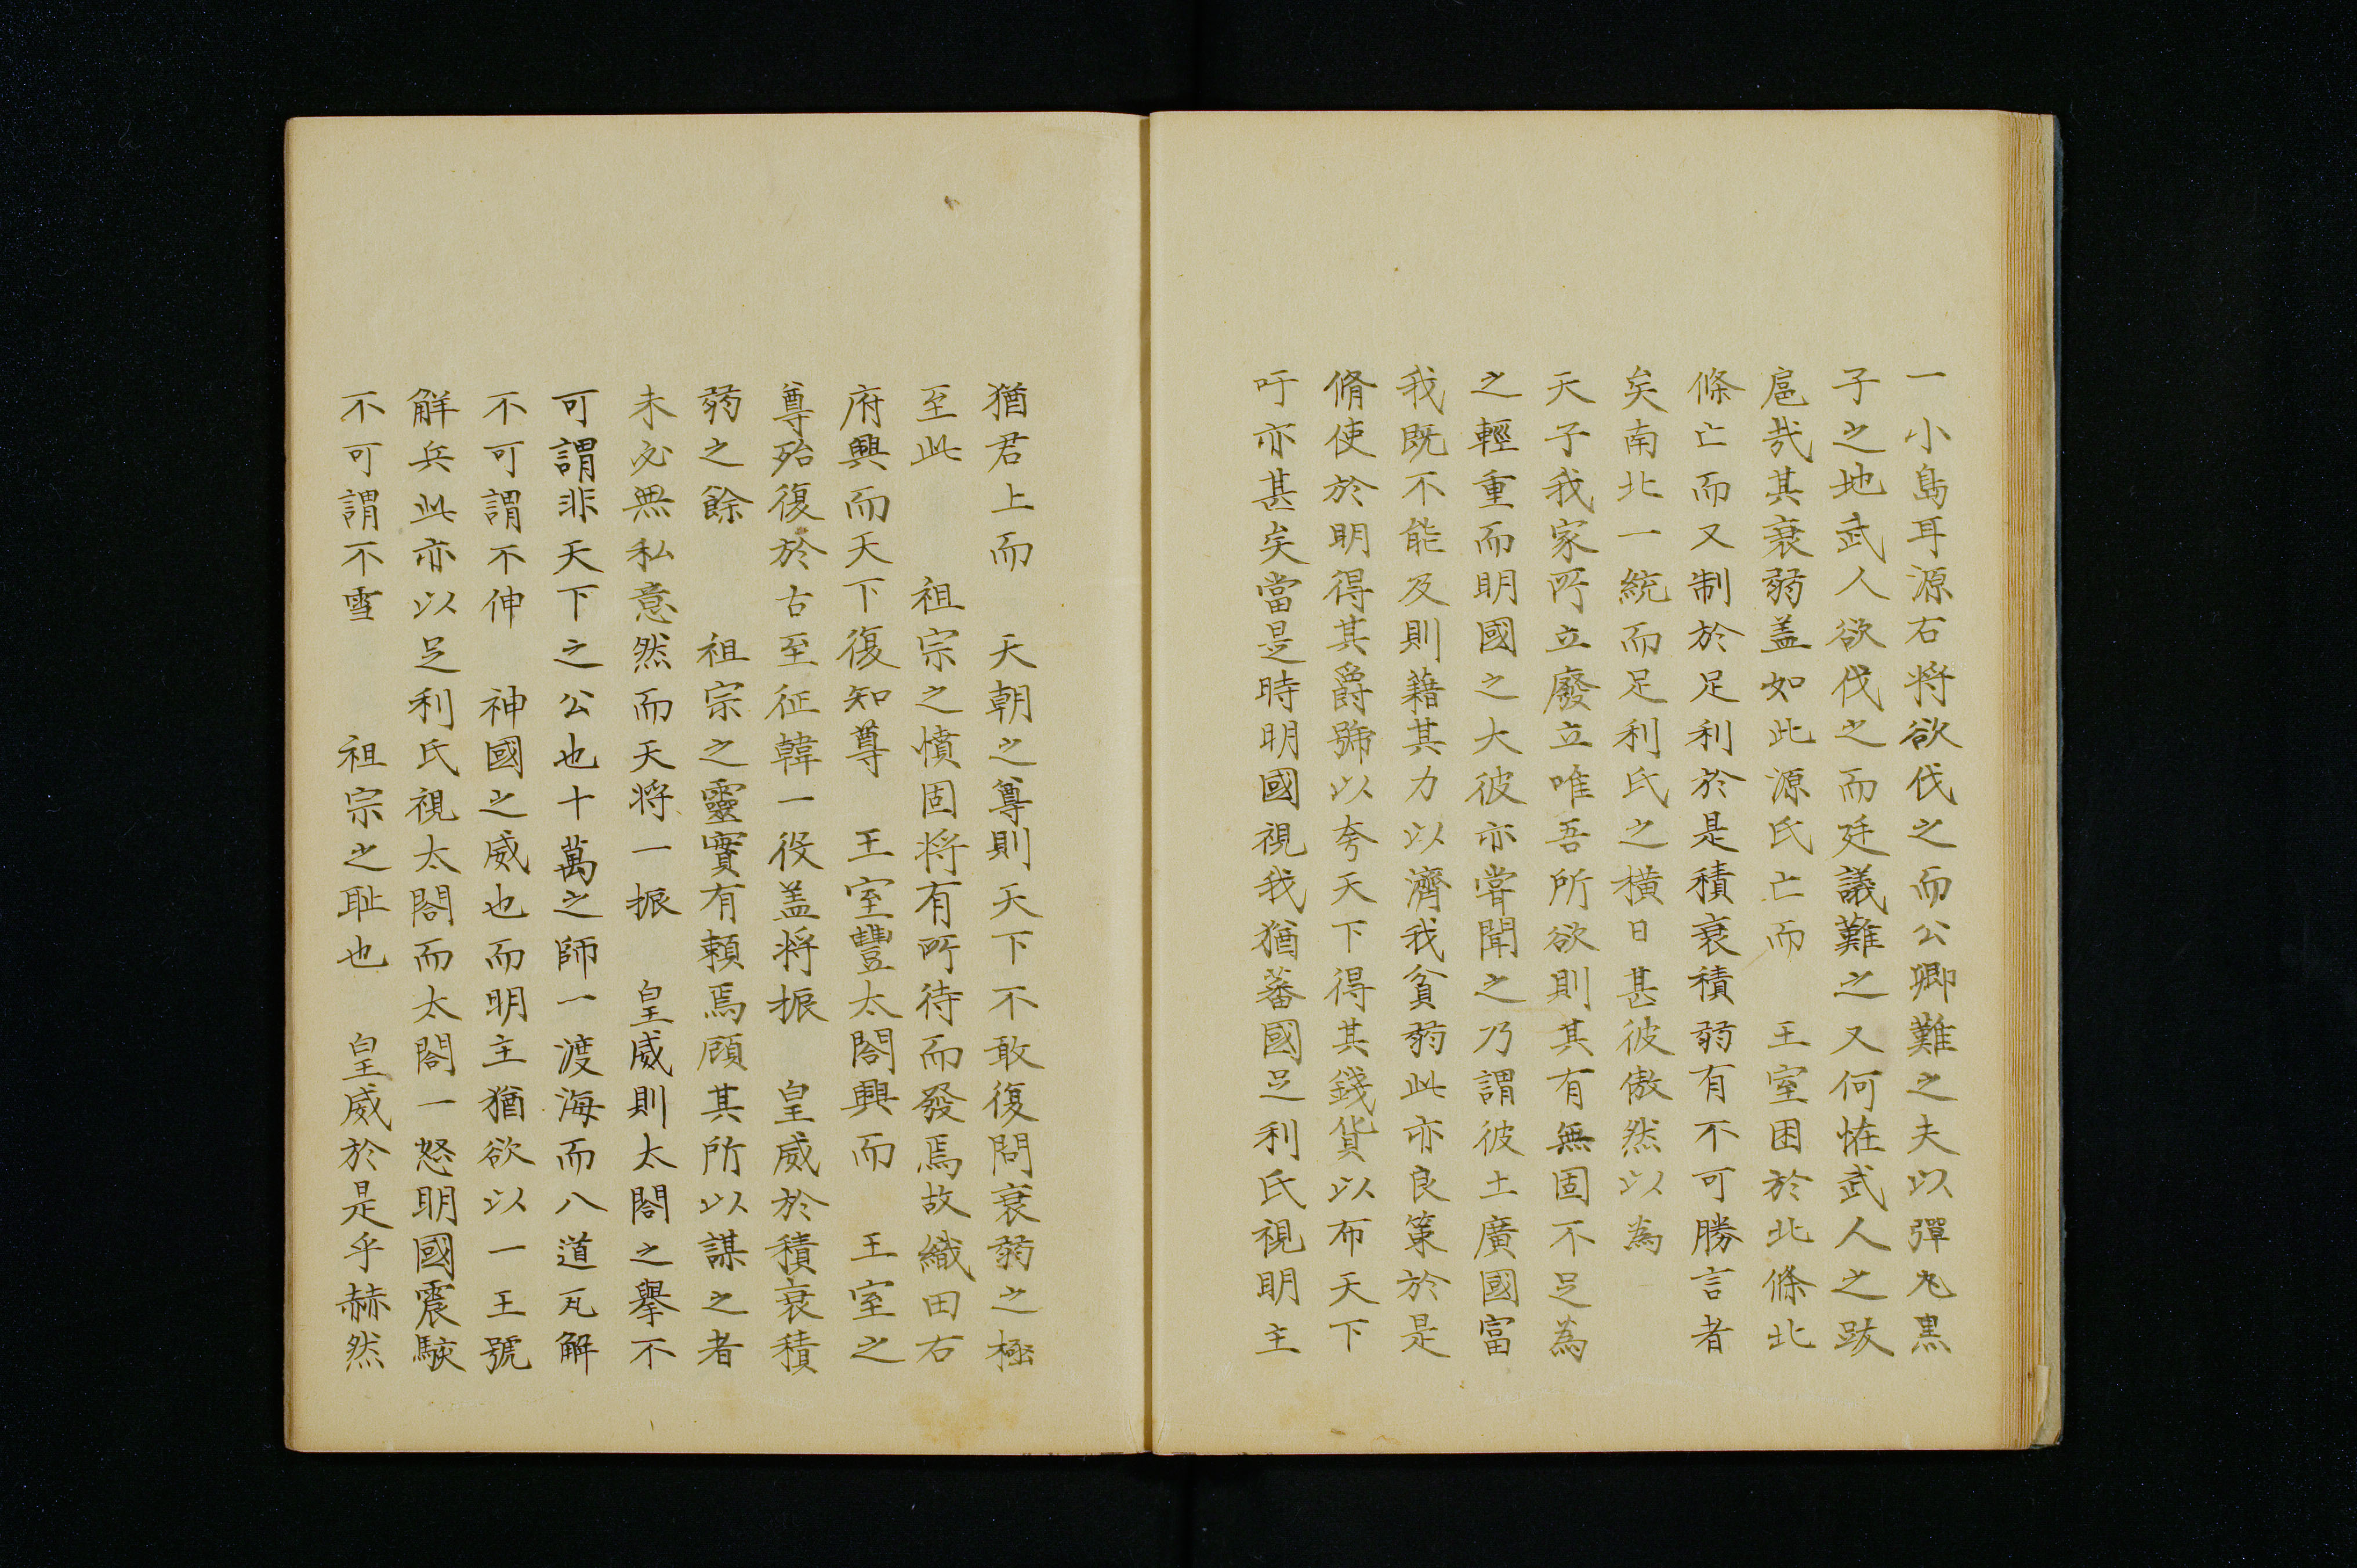 一小島耳源右将欲伐之而公卿難之夫以彈丸黒
子之地武人欲伐之而廷議難之又何恠武人之跋
扈哉其衰弱盖如此源氏亡而　王室困於北條北
條亡而又制於足利於是積衰積弱有不可勝言者
矣南北一統而足利氏之横日甚彼傲然以為
天子我家所立廢立唯吾所欲則其有無固不足為
之輕重而明國之大彼亦甞聞之乃謂彼土廣國富
我既不能及則藉其力以濟我貧弱此亦良策於是
脩使於明得其爵號以夸天下得其錢貨以布天下
吁亦甚矣當是時明國視我猶蕃國足利氏視明主
猶君上而　天朝之尊則天下不敢復問衰弱之極
至此　　祖宗之憤固将有所待而發焉故織田右
府興而天下復知尊　王室豐太閤興而　王室之
尊殆復於古至征韓一役盖将振　皇威於積衰積
弱之餘　　祖宗之靈實有頼焉顧其所以謀之者
未必無私意然而天将一振　皇威則太閤之擧不
可謂非天下之公也十萬之師一渡海而八道瓦解
不可謂不伸　神國之威也而明主猶欲以一王號
解兵此亦以足利氏視太閤而太閤一怒明國震駭
不可謂不雪　　祖宗之耻也　皇威於是乎赫然